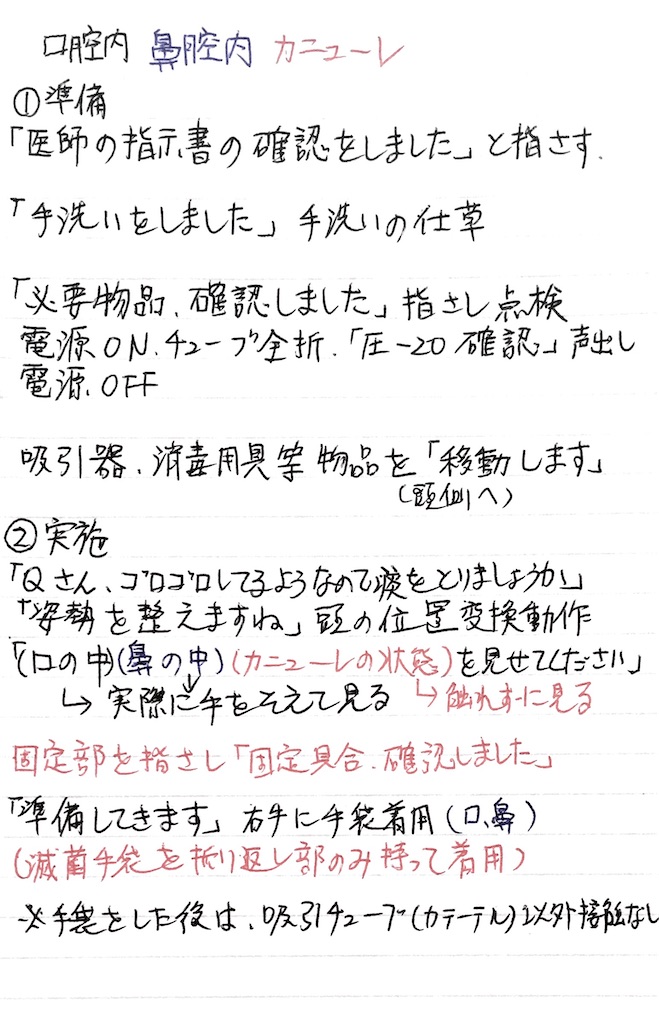 口腔内 鼻腔内 カニューレ
①準備
「医師の指示書の確認をしました」と指さす.
「手洗いをしました」手洗いの仕草
「必要物品、確認しました」指さし点検
電源ON.チューブ全折.「圧-20確認」声出し
電源OFF
吸引器、消毒用具等物品を「移動します」
(頭側へ)
②実施
「Qさん、ゴロゴロしてるようなので痰をとりましょうか」
「姿勢を整えますね」頭の位置変換動作
「(口の中)(鼻の中)(カニューレの状態)を見せてください」
↳ 実際に手をそえて見る ↳触れずに見る
固定部を指さし「固定具合、確認しました」
「準備してきます」右手に手袋着用(口、鼻)
(滅菌手袋を折り返し部のみ持って着用)
※手袋をした後は、吸引チューブ(カテーテル)以外接触なし